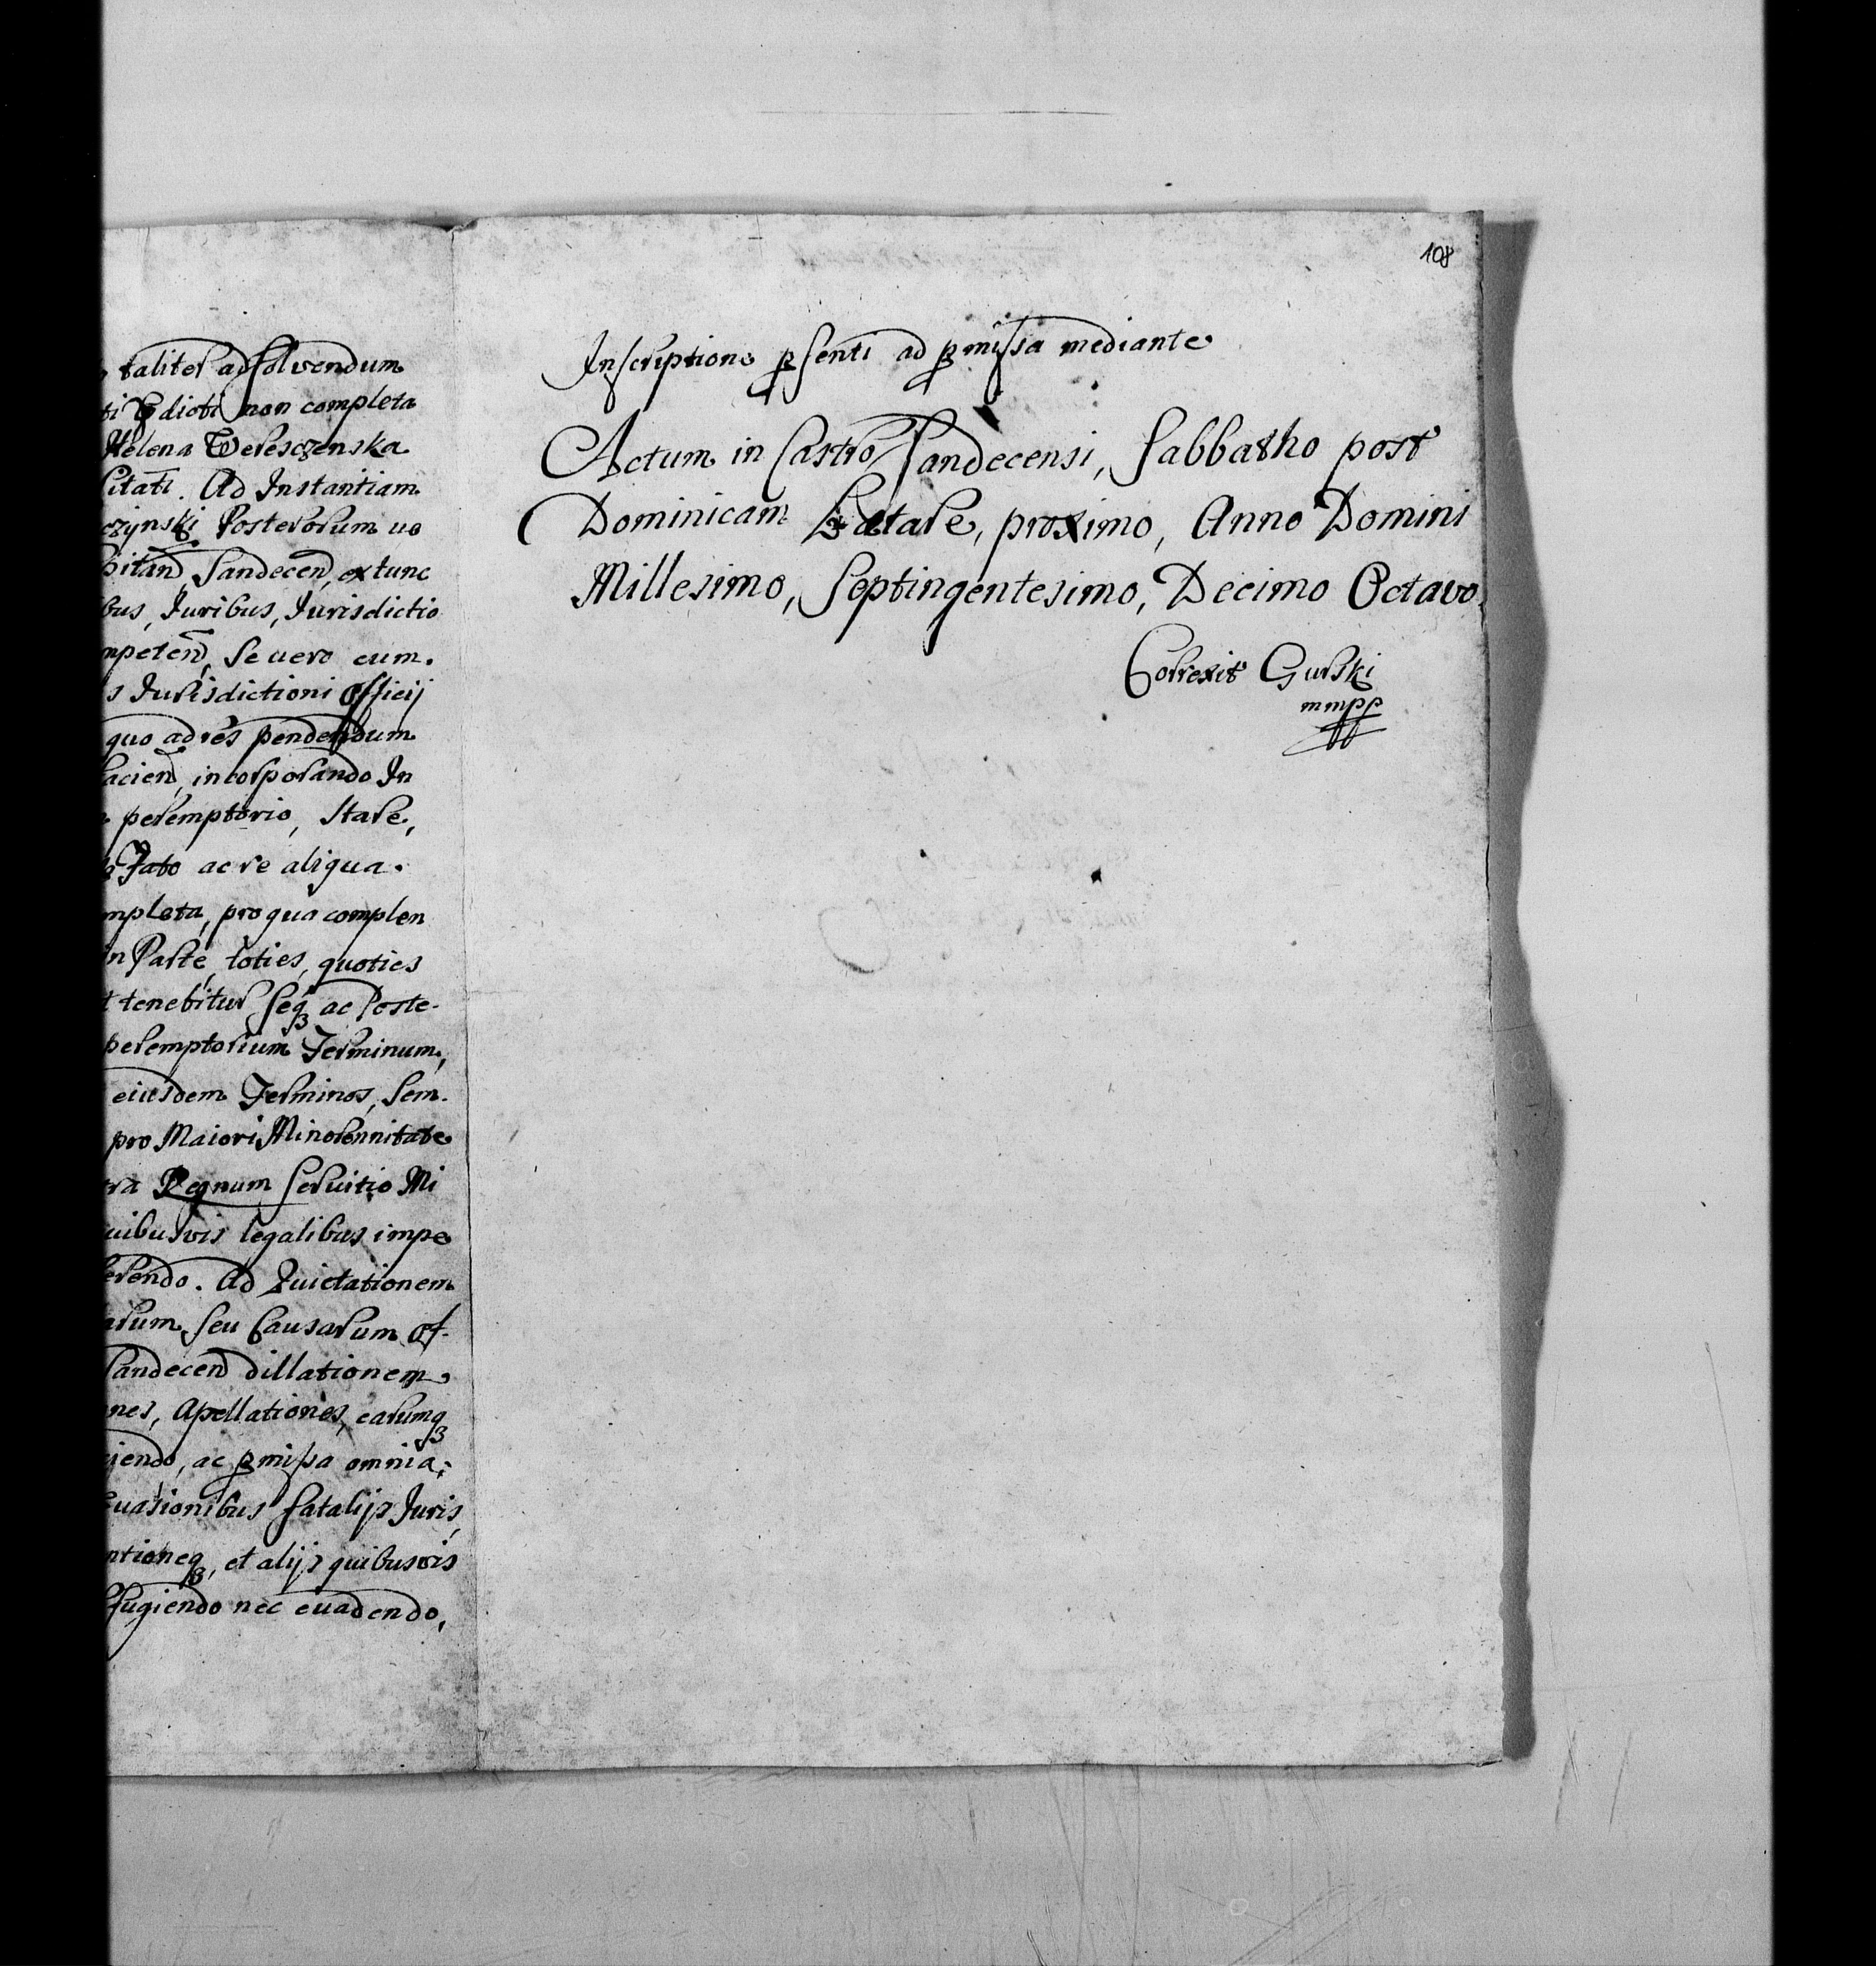 taliter adsolvendum
ti Edicti non completa
Helena Wereszczenska
Citati. Ad Instantiam
czynski Posterorum ue
pitan̄, Sandecen̄, extunc
bus, Juribus, Jurisdictio
mpeten̄, se uero cum
s Jurisdictioni Officij
quo ad res pendendum
facien̄, incorporando In
peremptorio, Stare,
Fato ac re aliqua.
mpleta, pro qua complen
in Parte, toties, quoties
t tenebitur Seq₃ ac Poste-
peremptorium Terminum,
eiusdem Terminos, Sem-
pro Maiori Minorennitate
tra Regnum Seruitio Mi
uibusvis legalibus impe
erendo. Ad Quietationem
arum seu Causarum Of-
Sandecen̄ dillationem
nes, Apellationes, earumq₃
iendo, ac p̱missa omnia
Euasionibus fatalijs Juris,
ntioneq₃, et alijs quibusvis
ffugiendo nec euadendo,
108
Inscriptione p̱senti ad p̱missa mediante
Actum in Castro Sandecensi, Sabbatho post
Dominicam Lætare, proximo, Anno Domini
Millesimo, Septingentesimo, Decimo Octavo.
Correxit Gurski
mmpp